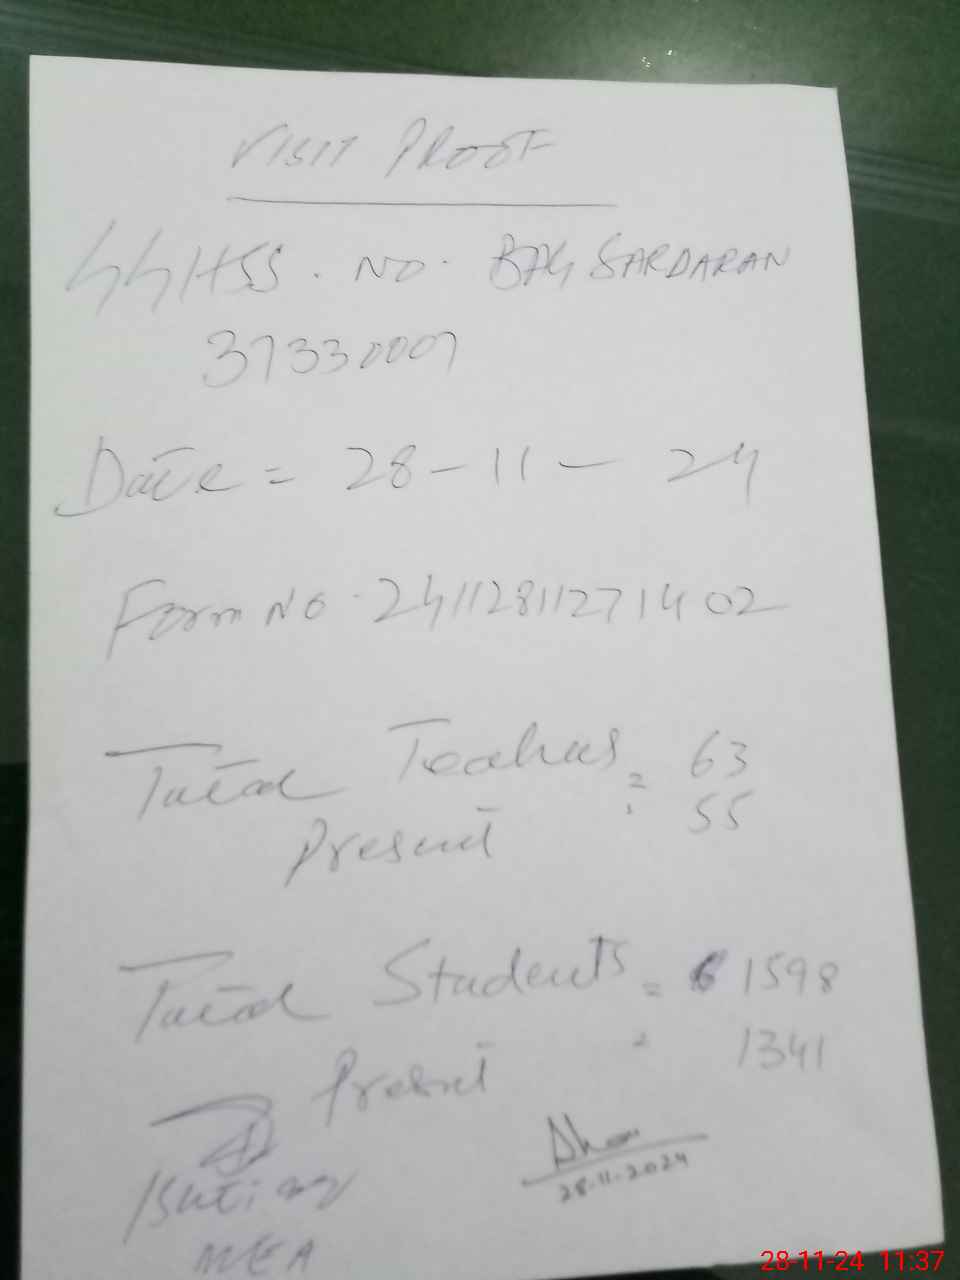 VISIT PROOF
GGHSS. NO. BAG SARDARAN
37330007
Date = 28-11-24
Form No. 241128112714 02
Total Teachers = 63
Present : 55
Total Students = 1598
Present = 1341
28-11-2024
MEA
28-11-24 11:37